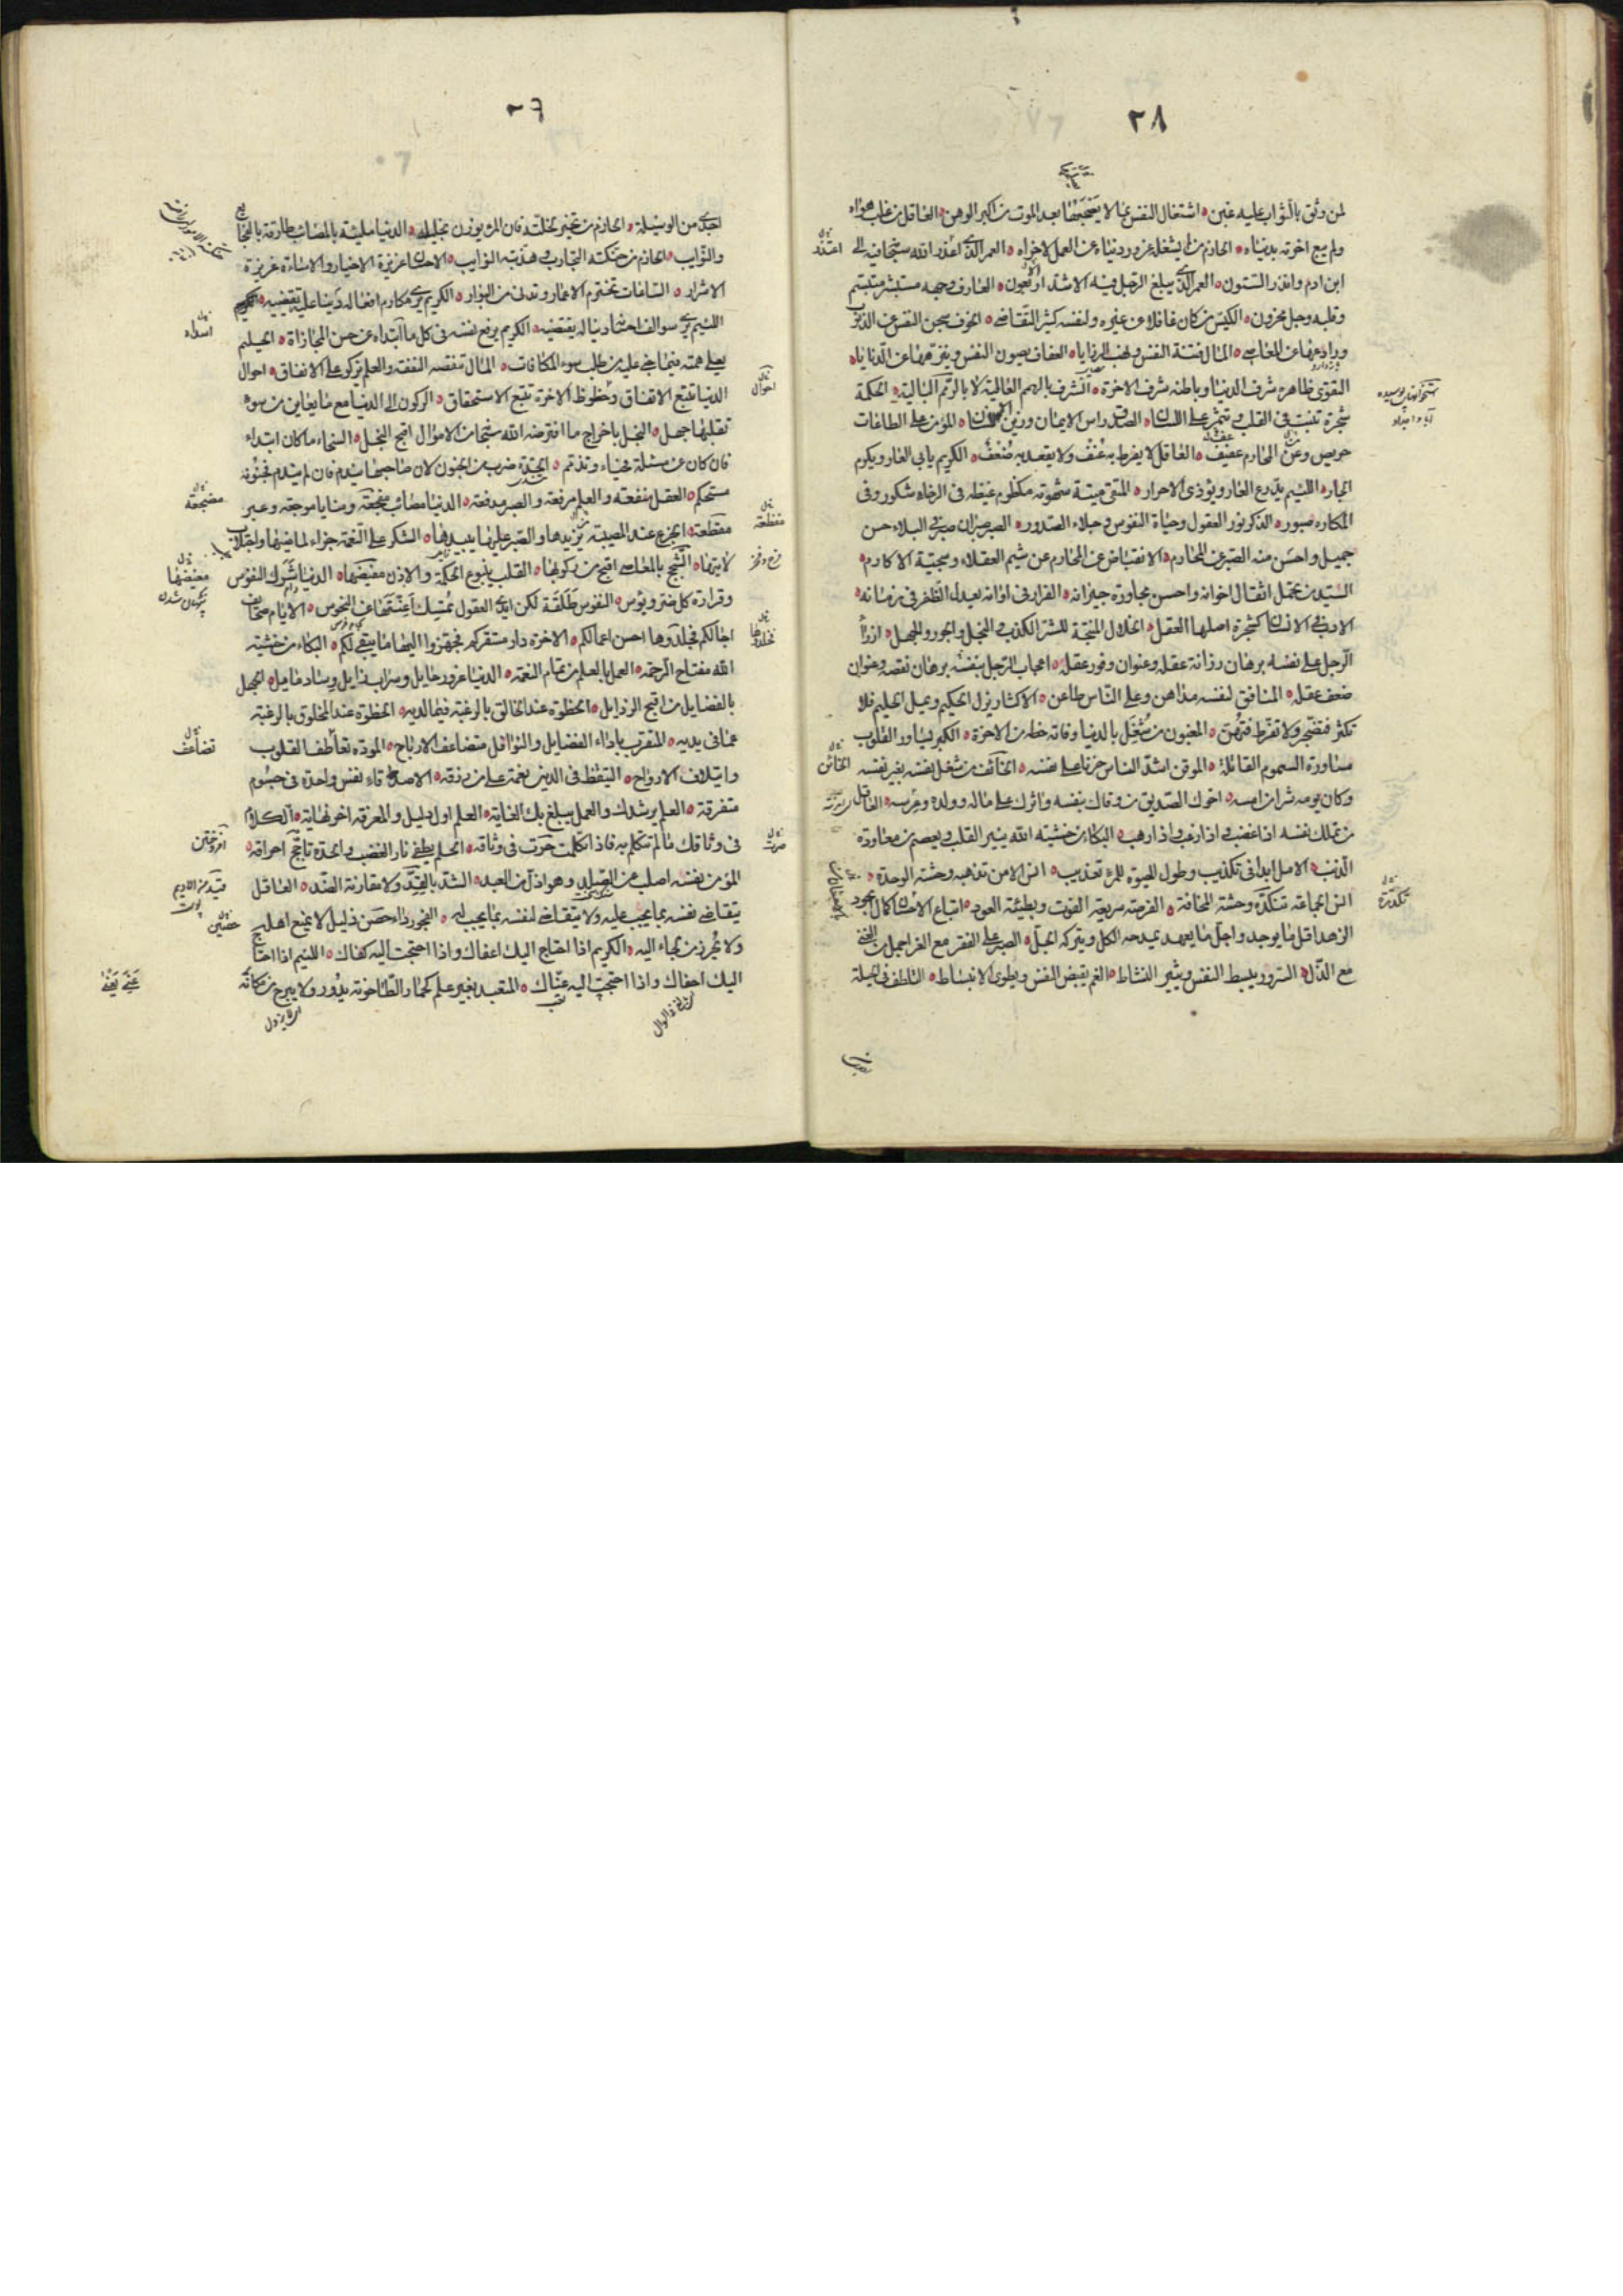 ٢٨
لمن وثق بالثواب عليه غبن اشتغال النفس بما لا يصحبها بعد الموت من اكبر الوهن العاقل من غلب هواه
ولم يبع اخرته بدنياه الحازم من لم يشغله غرور دنياه عن العمل لاخراه العمر الذى اعذر الله سبحانه فيه الى
ابن ادم وانذر الستون العمر الذى يبلغ الرجل فيه الاشد الاربعون العارف وجهه مستبشر متبسم
وقلبه وجل محزون الكيس من كان غافلا عن غيره ولنفسه كثير التقاضى الخوف سجن النفس عن الذنوب
ورادعها عن المعاصى المال فتنة النفس ونهب الرزايا العفاف يصون النفس وينزهها عن الدنايا
التقوى ظاهره شرف الدنيا وباطنه شرف الاخرة الشرف بالهمم العالية لا بالرمم البالية الحكمة
شجرة تنبت فى القلب وتثمر على اللسان الصدق راس الايمان وزين الانسان المؤمن على الطاعات
حريص وعن المحارم عفيف العاقل لا يفرط به عنف ولا يقعد به ضعف الكريم يابى العار ويكرم
الجار اللئيم يدرع العار ويؤذى الاحرار المتقى ميتة شهوته مكظوم غيظه فى الرخاء شكور وفى
المكاره صبور الذكر نور العقول وحياة النفوس وجلاء الصدور الصبر صبران صبر فى البلاء حسن
جميل واحسن منه الصبر عن المحارم الانقباض عن المحارم من شيم العقلاء وسجية الاكارم
السيد من تحمل اثقال اخوانه واحسن مجاورة جيرانه الفرار فى اوانه يعدل الظفر فى زمانه
الادب فى الانسان كشجرة اصلها العقل الخلال المنتجة للشر الكذب والبخل والجور والجهل ازراء
الرجل على نفسه برهان رزانة عقله وعنوان وفور عقله اعجاب الرجل بنفسه برهان نقصه وعنوان
ضعف عقله المنافق لنفسه مداهن وعلى الناس طاعن الاكثار يزل الحكيم ويمل الحليم فلا
تكثر فتضجر ولا تفرط فتهن المغبون من شغل بالدنيا وفاته حظه من الاخرة الكبر يساور القلوب
مساورة السموم القاتلة الموقن اشد الناس حزنا على نفسه الخائف من شغل نفسه بغير نفسه
وكان يومه شرا من امسه اخوك الصديق من وقاك بنفسه واثرك على ماله وولده وعرسه العاقل
من تملك نفسه اذا غضب واذا رغب واذا رهب البكاء من خشية الله ينير القلب ويعصم من معاودة
الذنب الامل ابدا فى تكذيب وطول الحيوة للمرء تعذيب انس الامن تذهبه وحشة الوحدة
انس الجماعة تنكده وحشة المخافة الفرصة سريعة الفوت وبطيئة العود اتباع الاحسان كمال الجود
الزهد اقل ما يوجد واجل ما يعهد يمدحه الكل ويتركه الجل الصبر على الفقر مع العز اجمل من الغنى
مع الذل السرور يبسط النفس ويثير النشاط الغم يقبض النفس ويطوى الانبساط التلطف فى الحيلة
اعتذر
الخائن
تكدره
٢٩
اجدى من الوسيلة الحازم من تخير لخلته فان المرء يوزن بخليله الدنيا مليئة بالمصائب طارقة بالفجائع
والنوايب الحازم من حنكته التجارب وهذبته النوايب الاحسان غريزة الاخيار والاساءة غريزة
الاشرار الساعات تخترم الاعمار وتدنى من البوار الكريم يرى مكارم افعاله دينا عليه يقضيه
اللئيم يرى سوالف احسانه دينا له يقتضيه الكريم يرفع نفسه فى كل ما ابتداه عن حسن المجازاة الحليم
يعلى همته فيما جنى عليه من طلب سوء المكافات المال تنقصه النفقة والعلم يزكو على الانفاق احوال
الدنيا تتبع الاتفاق وحظوظ الاخرة تتبع الاستحقاق الركون الى الدنيا مع ما يعاين من سوء
تقلبها جهل البخل باخراج ما افترضه الله سبحانه من الاموال اقبح البخل السخاء ما كان ابتداء
فان كان عن مسئلة فحياء وتذمم الحدة ضرب من الجنون لان صاحبها يندم فان لم يندم فجنونه
مستحكم العقل منفعة والعلم مرفعة والصبر مدفعة الدنيا مصائب مفجعة ومنايا موجعة وعبر
مقطعة الجزع عند المصيبة يزيدها والصبر عليها يبيدها الشكر على النعمة جزاء لماضيها واجتلاب
لاتيها التبجح بالمعاصى اقبح من ركوبها القلب ينبوع الحكمة والاذن مغيضها الدنيا شرك النفوس
وقرارة كل ضر وبؤس النفوس طلقة لكن ايدى العقول تمسك اعنتها عن النحوس الايام صحائف
اجالكم فخلدوها احسن اعمالكم الاخرة دار مستقركم فجهزوا اليها ما يبقى لكم البكاء من خشية
الله مفتاح الرحمة العمل بالعلم من تمام النعمة الدنيا غرور حايل وسراب زايل وسناد مايل الجهل
بالفضايل من اقبح الرذايل الحظوة عند الخالق بالرغبة فيما لديه الحظوة عند المخلوق بالرغبة
عما فى يديه المتقرب باداء الفضايل والنوافل متضاعف الارباح المودة تعاطف القلوب
وايتلاف الارواح التيقظ فى الدين نعمة على من رزقه الاصدقاء نفس واحدة فى جسوم
متفرقة العلم يرشدك والعمل يبلغ بك الغاية العلم اول دليل والمعرفة اخر نهاية الكلام
فى وثاقك ما لم تتكلم به فاذا تكلمت صرت فى وثاقه الحلم يطفى نار الغضب والحدة تاجج احراقه
المؤمن نفسه اصلب من الصلد وهو اذل من العبد الشد بالقد ولا مقارنة الضد العاقل
يتقاضى نفسه بما يجب عليه ولا يتقاضى لنفسه بما يجب له الفجور دار حصن ذليل لا يمنع اهله
ولا يحرز من لجاء اليه الكريم اذا احتاج اليك اعفاك واذا احتجت اليه كفاك اللئيم اذا احتاج
اليك احفاك واذا احتجت اليه عناك المتعبد بغير علم كحمار الطاحونة يدور ولا يبرح من مكانه
احوال
تضاعف